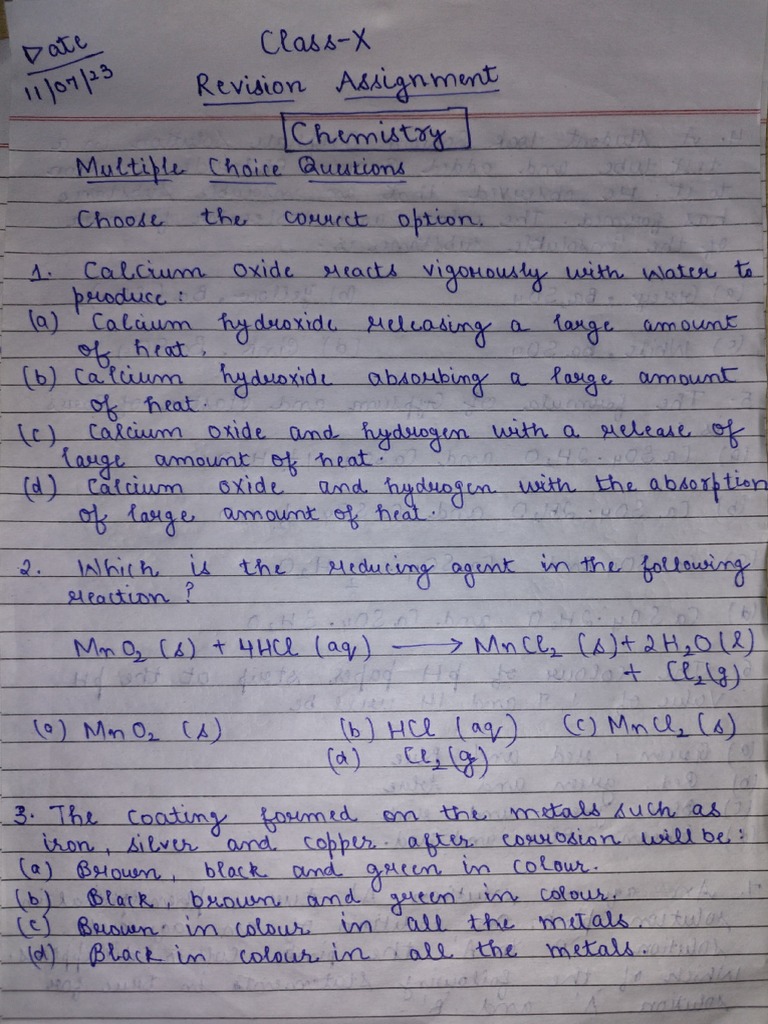 Date
11/07/23
Class-X
Revision Assignment
Chemistry
Multiple Choice Questions
Choose the correct option.
1. Calcium oxide reacts vigorously with water to
produce :
(a) Calcium hydroxide releasing a large amount
of heat.
(b) Calcium hydroxide absorbing a large amount
of heat.
(c) Calcium oxide and hydrogen with a release of
large amount of heat.
(d) Calcium oxide and hydrogen with the absorption
of large amount of heat.
2. Which is the reducing agent in the following
reaction ?
MnO₂ (s) + 4HCl (aq) ⟶ MnCl₂ (s) + 2H₂O (l)
+ Cl₂ (g)
(a) MnO₂ (s) (b) HCl (aq) (c) MnCl₂ (s)
(d) Cl₂ (g)
3. The coating formed on the metals such as
iron, silver and copper after corrosion will be :
(a) Brown, black and green in colour.
(b) Black, brown and green in colour.
(c) Brown in colour in all the metals.
(d) Black in colour in all the metals.